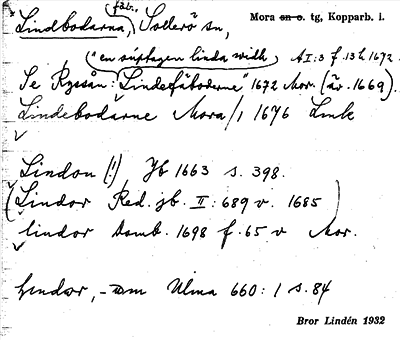 fäb.
Lindbodarna, Sollerö sn, Mora sn o. tg, Kopparb. l.
("en öüptagen linda widh" A I:3 f. 13 h 1672
Se Ryssån: "Lindefäboderne" 1672 Mor. (är 1669).
Lindebodarne Mora/1 1676 Link
Lindon (!) Jb 1663 s. 398.
(Lindor Red. jb. II: 689 v. 1685)
lindor domb. 1698 f. 65 v Mor.
lindor, Ulma 660: 1 s. 84
Bror Lindén 1932